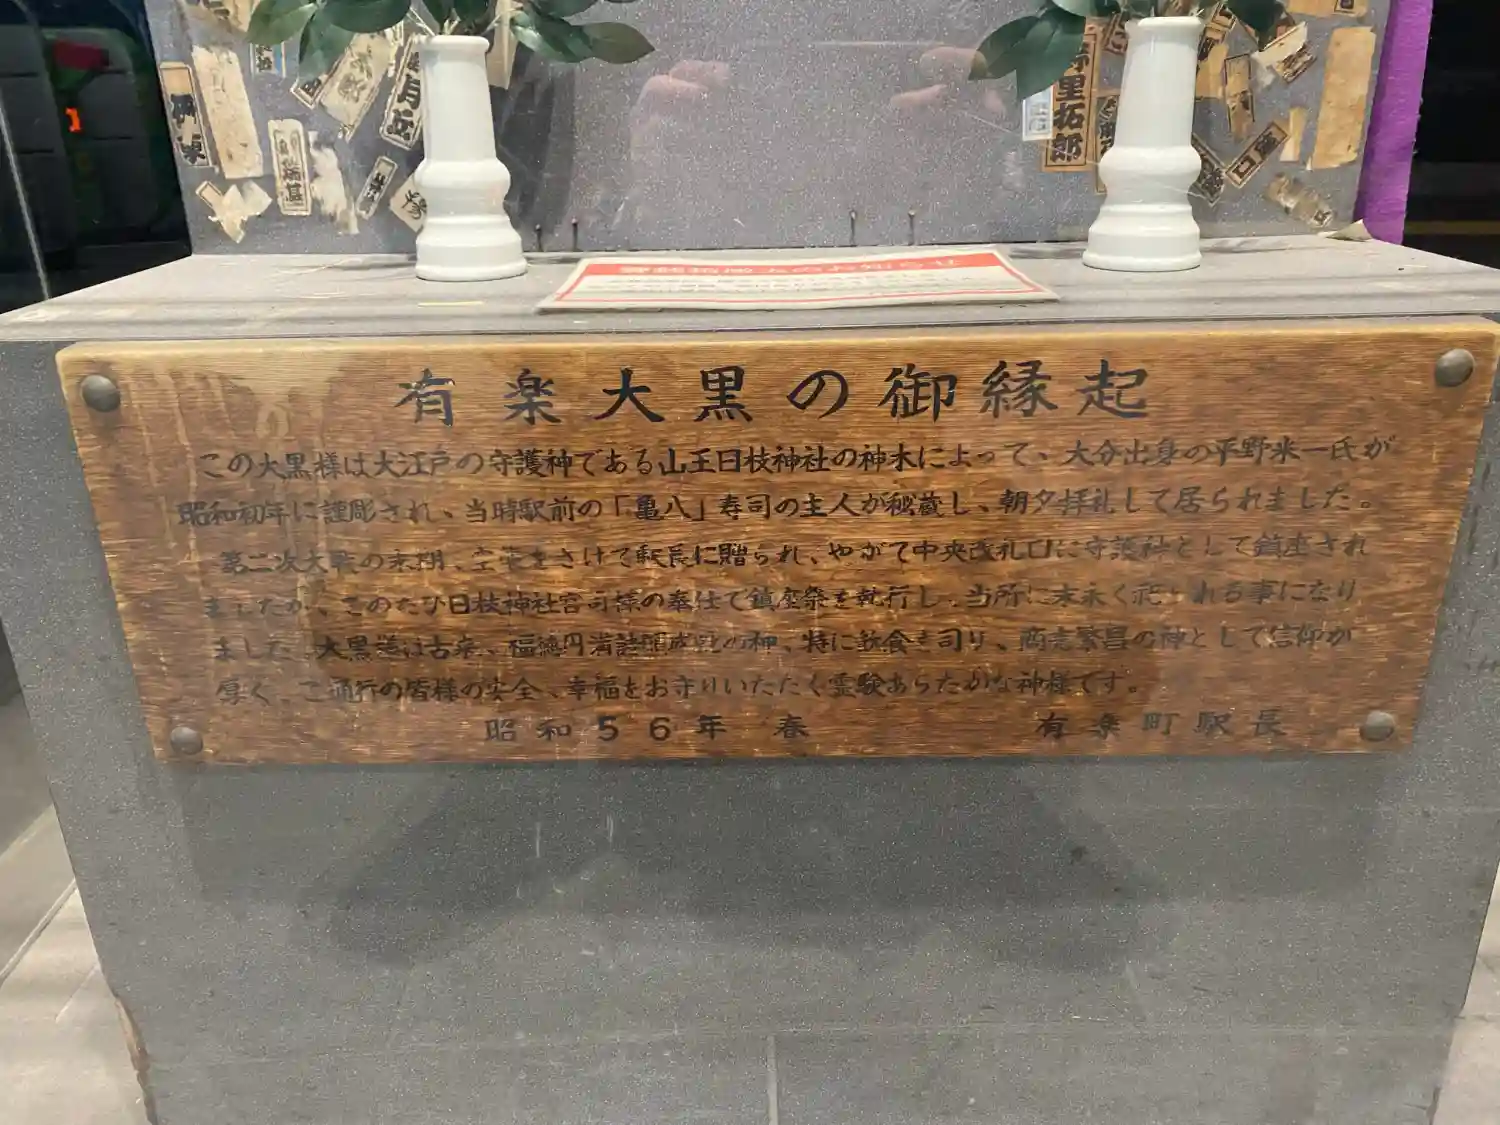 有里拓郎
賽銭箱廃止のお知らせ
有楽大黒の御縁起
この大黒様は大江戸の守護神である山王日枝神社の神木によって、大分出身の平野米一氏が
昭和初年に謹彫され、当時駅前の「亀八」寿司の主人が秘蔵し、朝夕拝礼して居られました。
第二次大戦の末期、空襲をさけて駅長に贈られ、やがて中央改札口に守護神として鎮座され
ましたが、このたび日枝神社宮司様の奉仕で鎮座祭を執行し、当所に末永く祀られる事になり
ました。大黒道は古来、福徳円満諸願成就の神、特に飲食を司り、商売繁昌の神として信仰が
厚く、ご通行の皆様の安全、幸福をお守りいただく霊験あらたかな神様です。
昭和56年 春 有楽町駅長